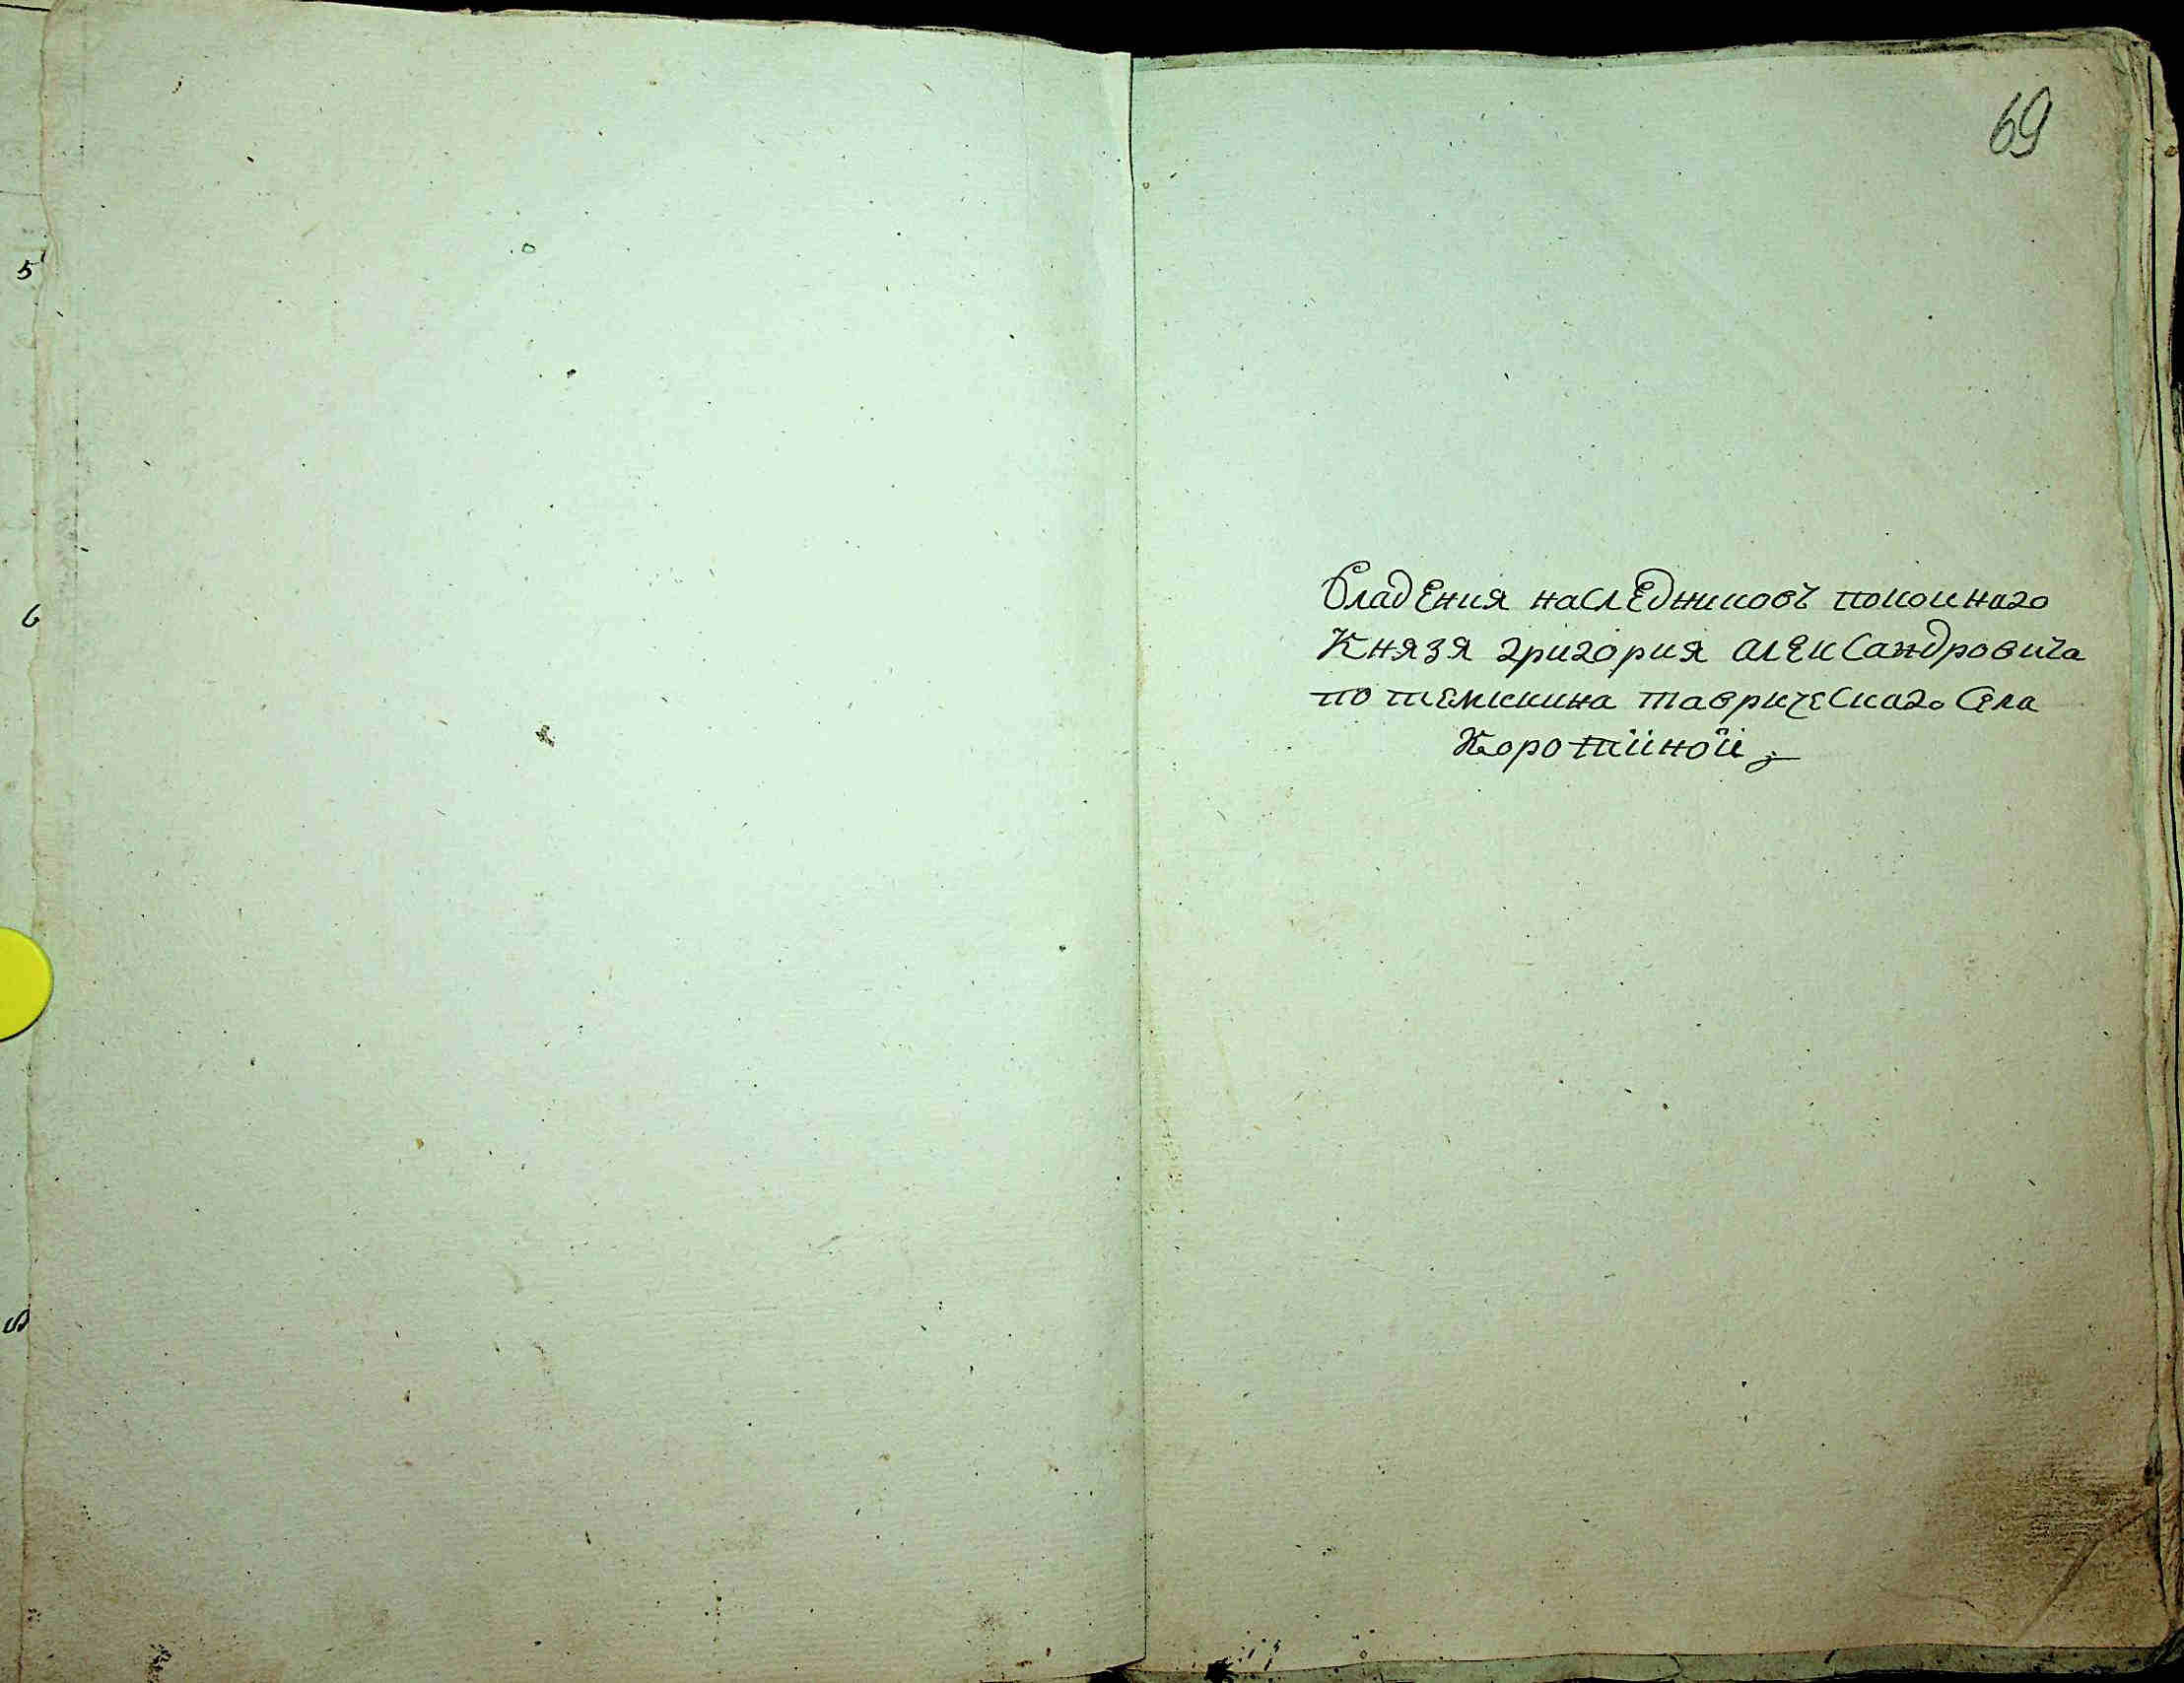 69
Владения наследниковъ покоинаго
Князя григория александровича
по темкина таврическаго села
Коротиной
5
6